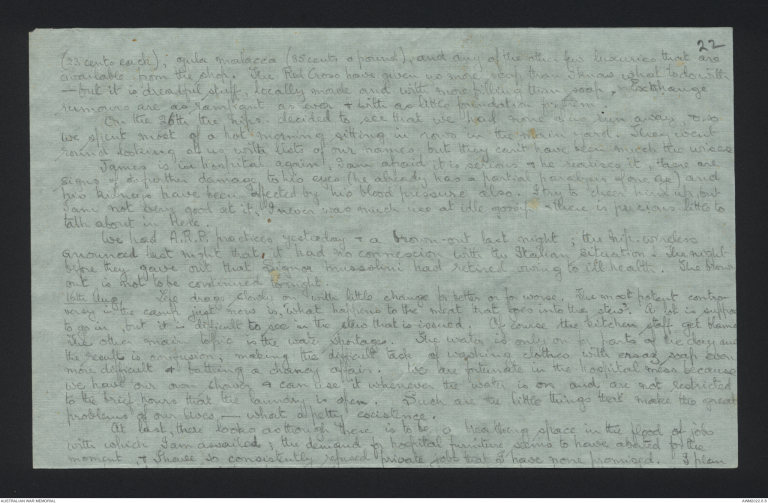 22
(23 cents each); gula malacca (35 cents a pound), and any of the other few luxuries that are
available from the shop. The Red Cross have given us more soap than I know what to do with
— but it is dreadful stuff, locally made and with more filling than soap. Exchange
rumours are as rampant as ever & with as little foundation
On the 26th the nips. decided to see that we had none of us run away, & so
we spent most of a hot morning sitting in rows in the main yard. They went
round looking at us with lists of our names, but they can't have been much the wiser.
James is in hospital again; I am afraid it is serious & he realises it, there are
signs of further damage to his eyes (he already has a partial paralysis of one eye) and
his kidneys have been affected by his blood pressure also. I try to cheer him up but
I am not very good at it; I never was much use at idle gossip & there is precious little to
talk about in here.
We had A.R.P. practices yesterday & a brown-out last night; the nip. wireless
announced last night that it had no connexion with the Italian situation. The night
before they gave out that Signor Mussolini had retired owing to ill health. The brown
out is not to be continued tonight.
16th Aug. Life drags slowly on with little change for better or for worse. The most potent contro-
versy in the camp just now is, what happens to the meat that goes into the stew? A lot is supposed
to go in, but it is difficult to see in the stew that is issued. Of course the kitchen staff get blamed.
The other main topic is the water shortage. The water is only on for parts of the day and
the result is confusion; making the difficult task of washing clothes with ersatz soap even
more difficult & bathing a chancy affair. We are fortunate in the hospital mess because
we have our own shower & can use it whenever the water is on and are not restricted
to the brief hours that the laundry is open. Such are the little things that make the great
problems of our lives, — what a petty existence.
At last there looks as though there is to be a breathing space in the flood of jobs
with which I am assailed; the demand for hospital furniture seems to have abated for the
moment, & I have so consistently refused private jobs that I have none promised. I plan
AUSTRALIAN WAR MEMORIAL